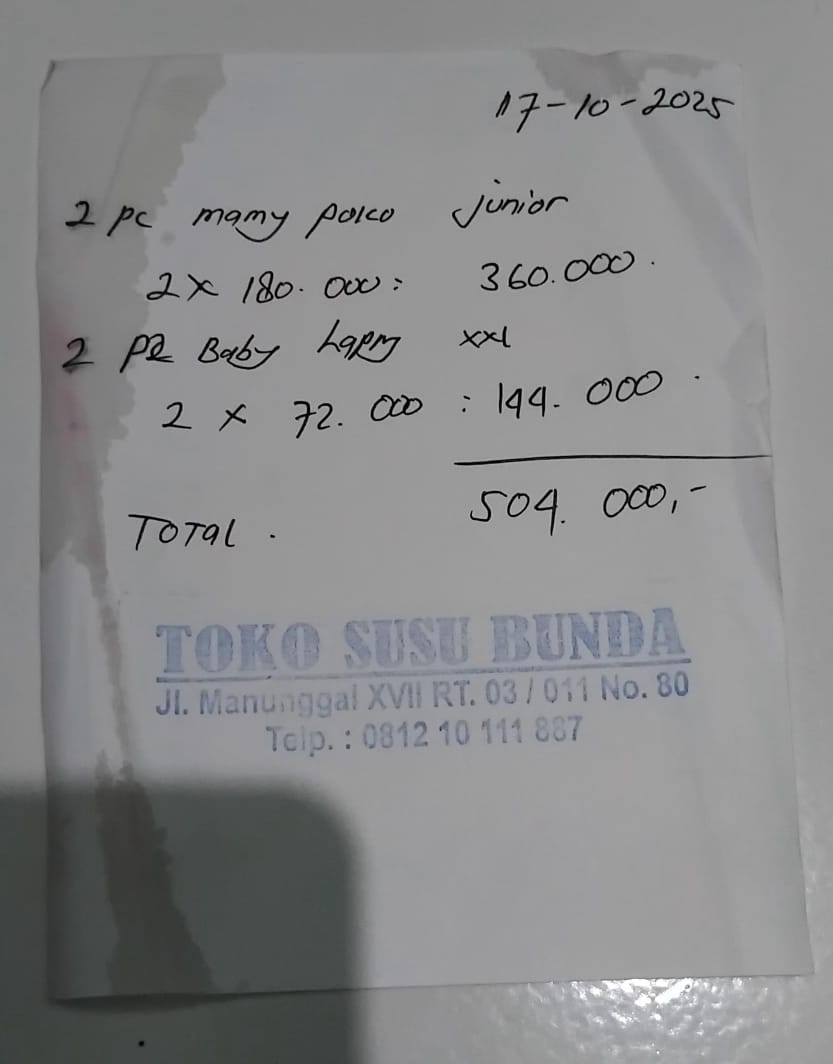 17-10-2025
2 pc mamy poko junior
2 x 180.000 : 360.000.
2 pc Baby happy xxl
2 x 72.000 : 144.000.
TOTAL. 504.000,-
TOKO SUSU BUNDA
Jl. Manunggal XVII RT. 03 / 011 No. 80
Telp. : 0812 10 111 887